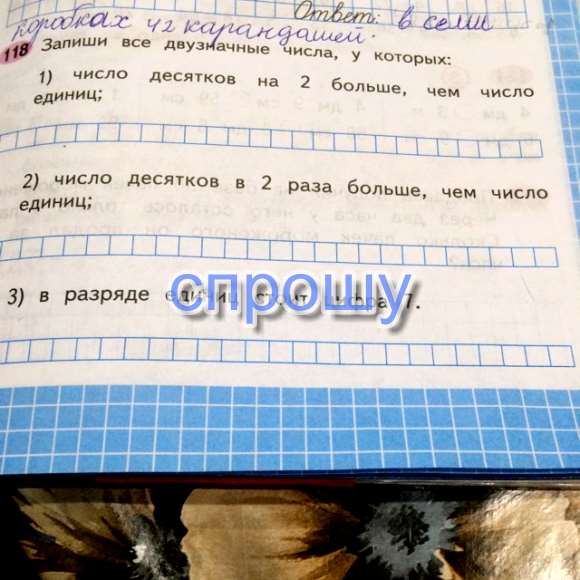 Ответ: в семи
коробках 42 карандашей.
118 Запиши все двузначные числа, у которых:
1) число десятков на 2 больше, чем число
единиц;
2) число десятков в 2 раза больше, чем число
единиц;
спрошу
3) в разряде единиц стоит цифра 7.